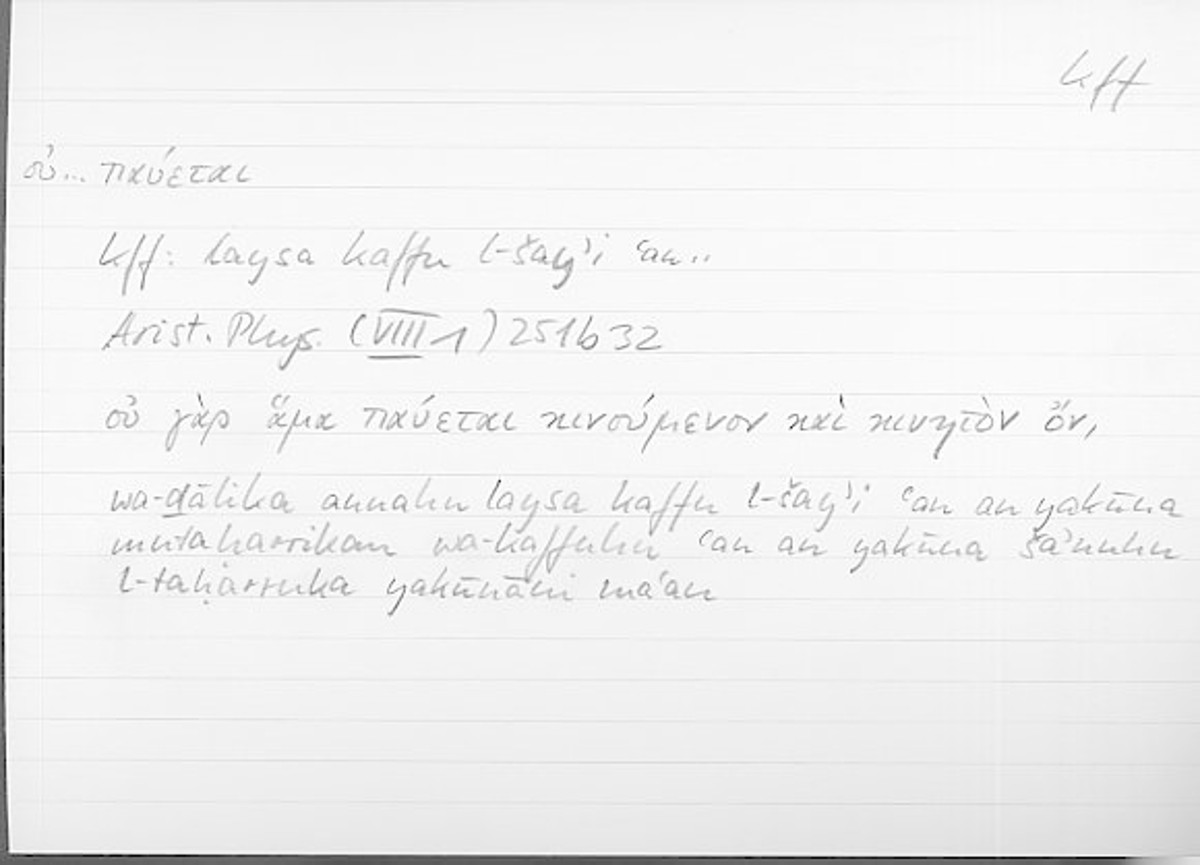 kff
οὐ... παύεται
kff: laysa kaffu l-šayʾi ʿan..
Arist. Phys. (VIII 1) 251b32
οὐ γὰρ ἅμα παύεται κινούμενον καὶ κινητὸν ὄν,
wa-ḏālika annahu laysa kaffu l-šayʾi ʿan an yakūna
mutaḥarrikan wa-kaffuhu ʿan an yakūna šaʾnuhu
l-taḥarruka yakūnāni maʿan